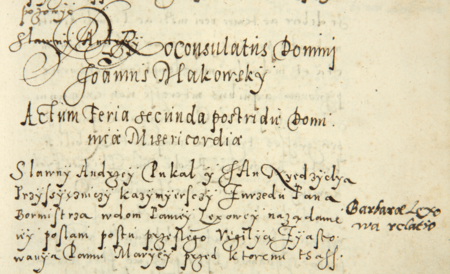 Slawny Andrzy
Proconsulatus Domini
Joannis Makowsky
Actum Feria secunda postridie Domi
nicæ Misericordiæ
Slawny Andrzey Pukal y JAn
Przysyężniczy Kazymyerscy Zurzedu Pana
Bormistrza wdom Paniey Lexowey nazadanie
iey poslani postu przeslego Vigilya Zwiasto
wanya Panny Maryey przed ktoremi
Barbaræ Lexo
wa relatio